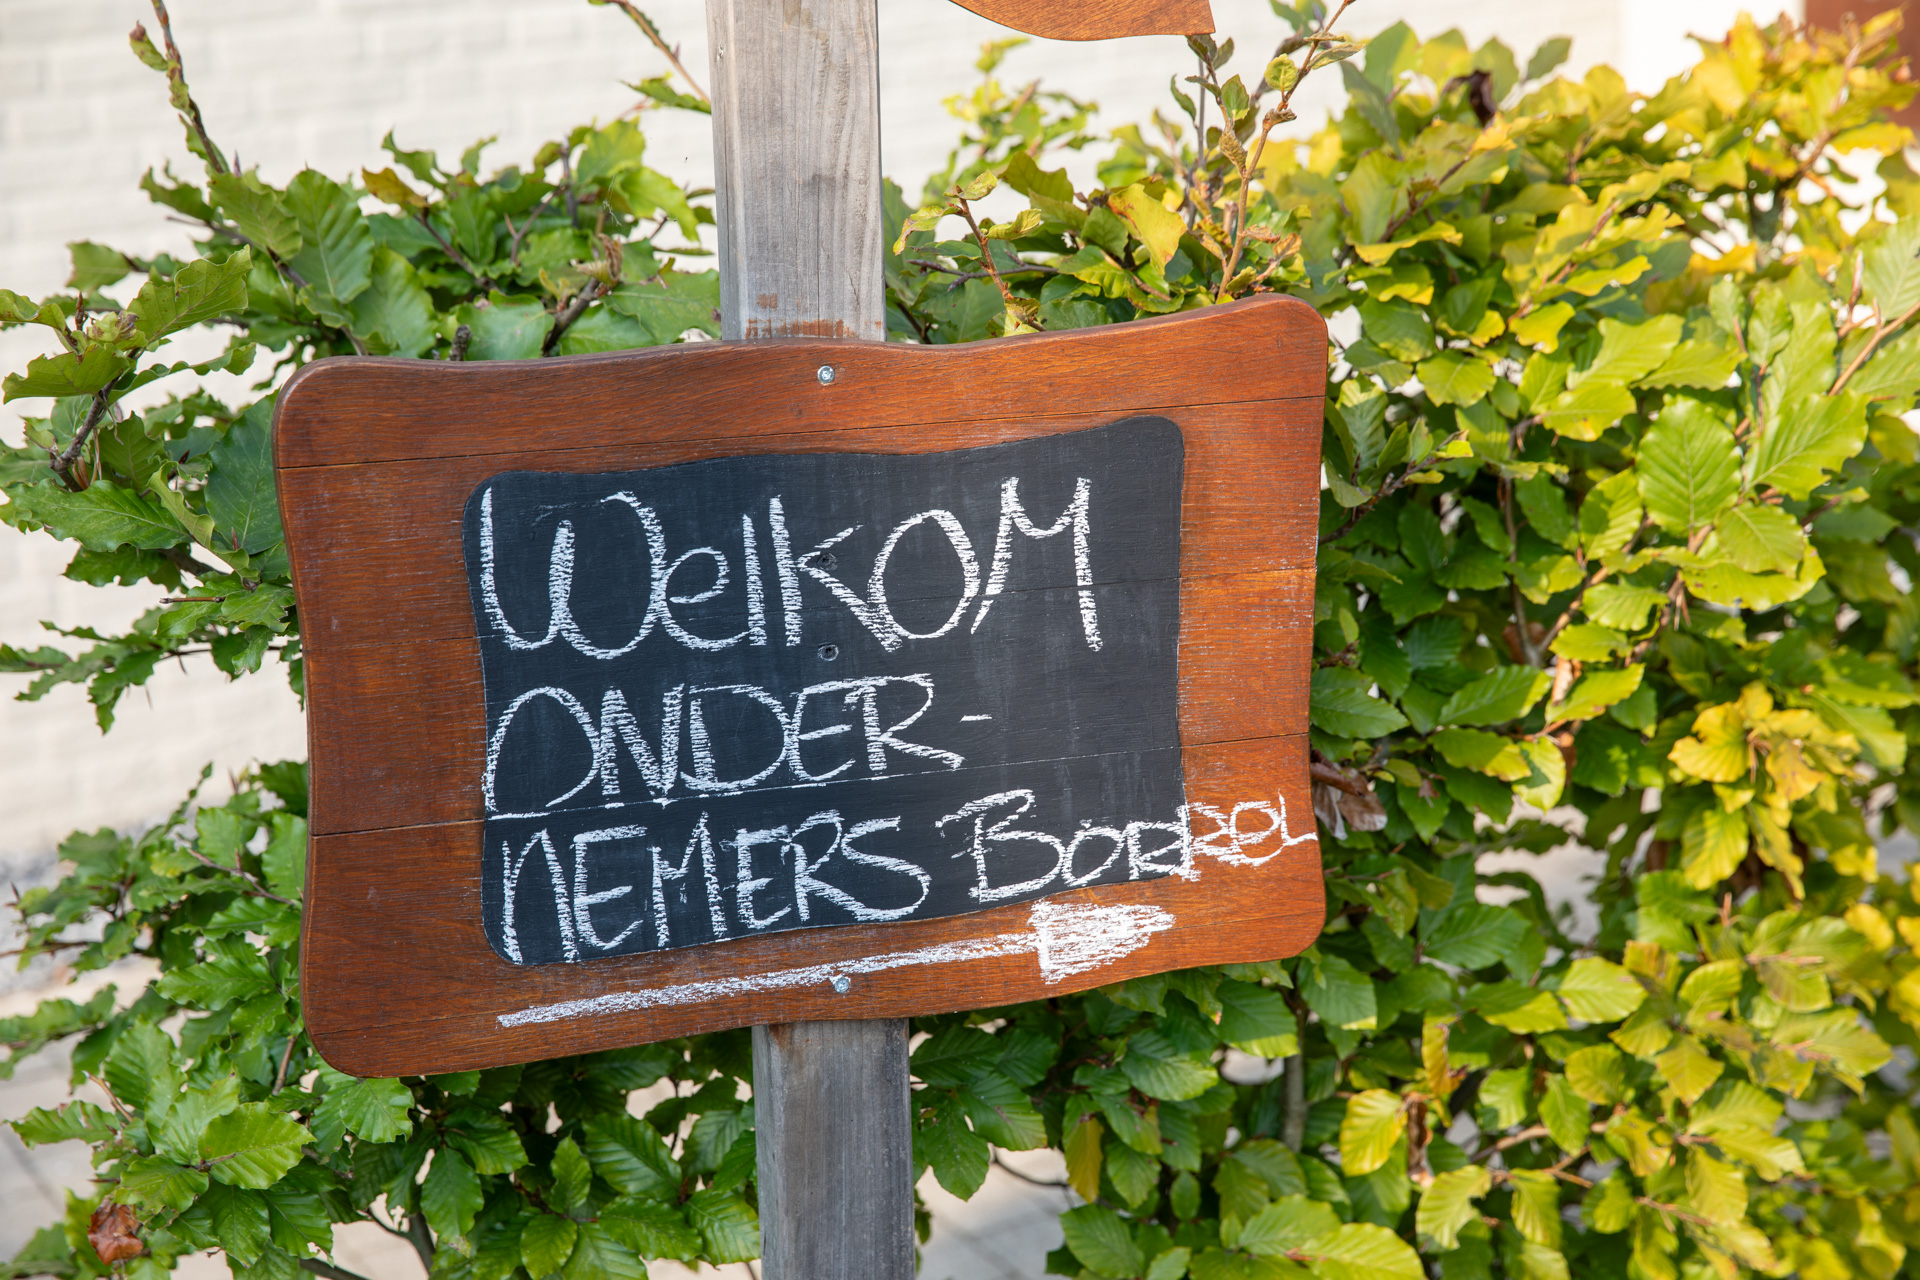 WelkOM
ONDER-
NEMERS BORREL